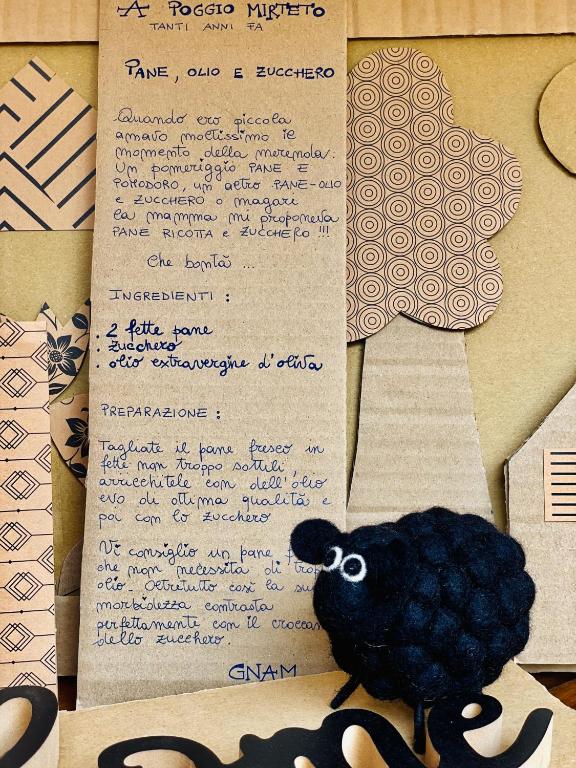 A POGGIO MIRTETO
TANTI ANNI FA
PANE, OLIO E ZUCCHERO
Quando ero piccola
amavo moltissimo il
momento della merenda.
Un pomeriggio PANE E
POMODORO, un altro PANE-OLIO
e ZUCCHERO o magari
la mamma mi proponeva
PANE RICOTTA e ZUCCHERO !!!
Che bontà ...
INGREDIENTI :
. 2 fette pane
. zucchero
. olio extravergine d'oliva
PREPARAZIONE :
Tagliate il pane fresco in
fette non troppo sottili,
arricchitele con dell'olio
evo di ottima qualità e
poi con lo zucchero
Vi consiglio un pane
che non necessita di
olio. Oltretutto così la su
morbidezza contrasta
perfettamente con il
dello zucchero.
GNAM